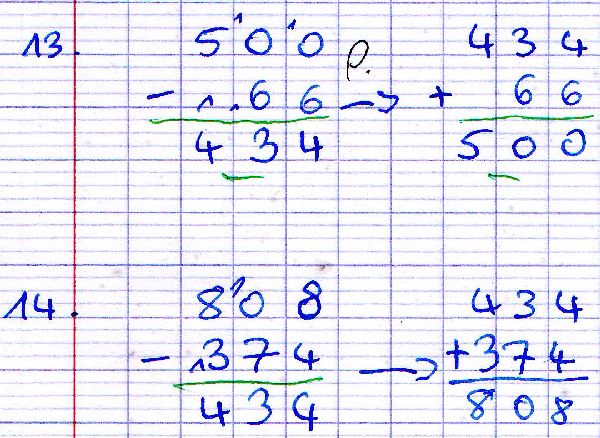 13. 5 ¹0 ¹0 P. 4 3 4
- ₁ ₁6 6 → + 6 6
4 3 4 5 0 0
14. 8 ¹0 8 4 3 4
- ₁3 7 4 → +3 7 4
4 3 4 8 0 8